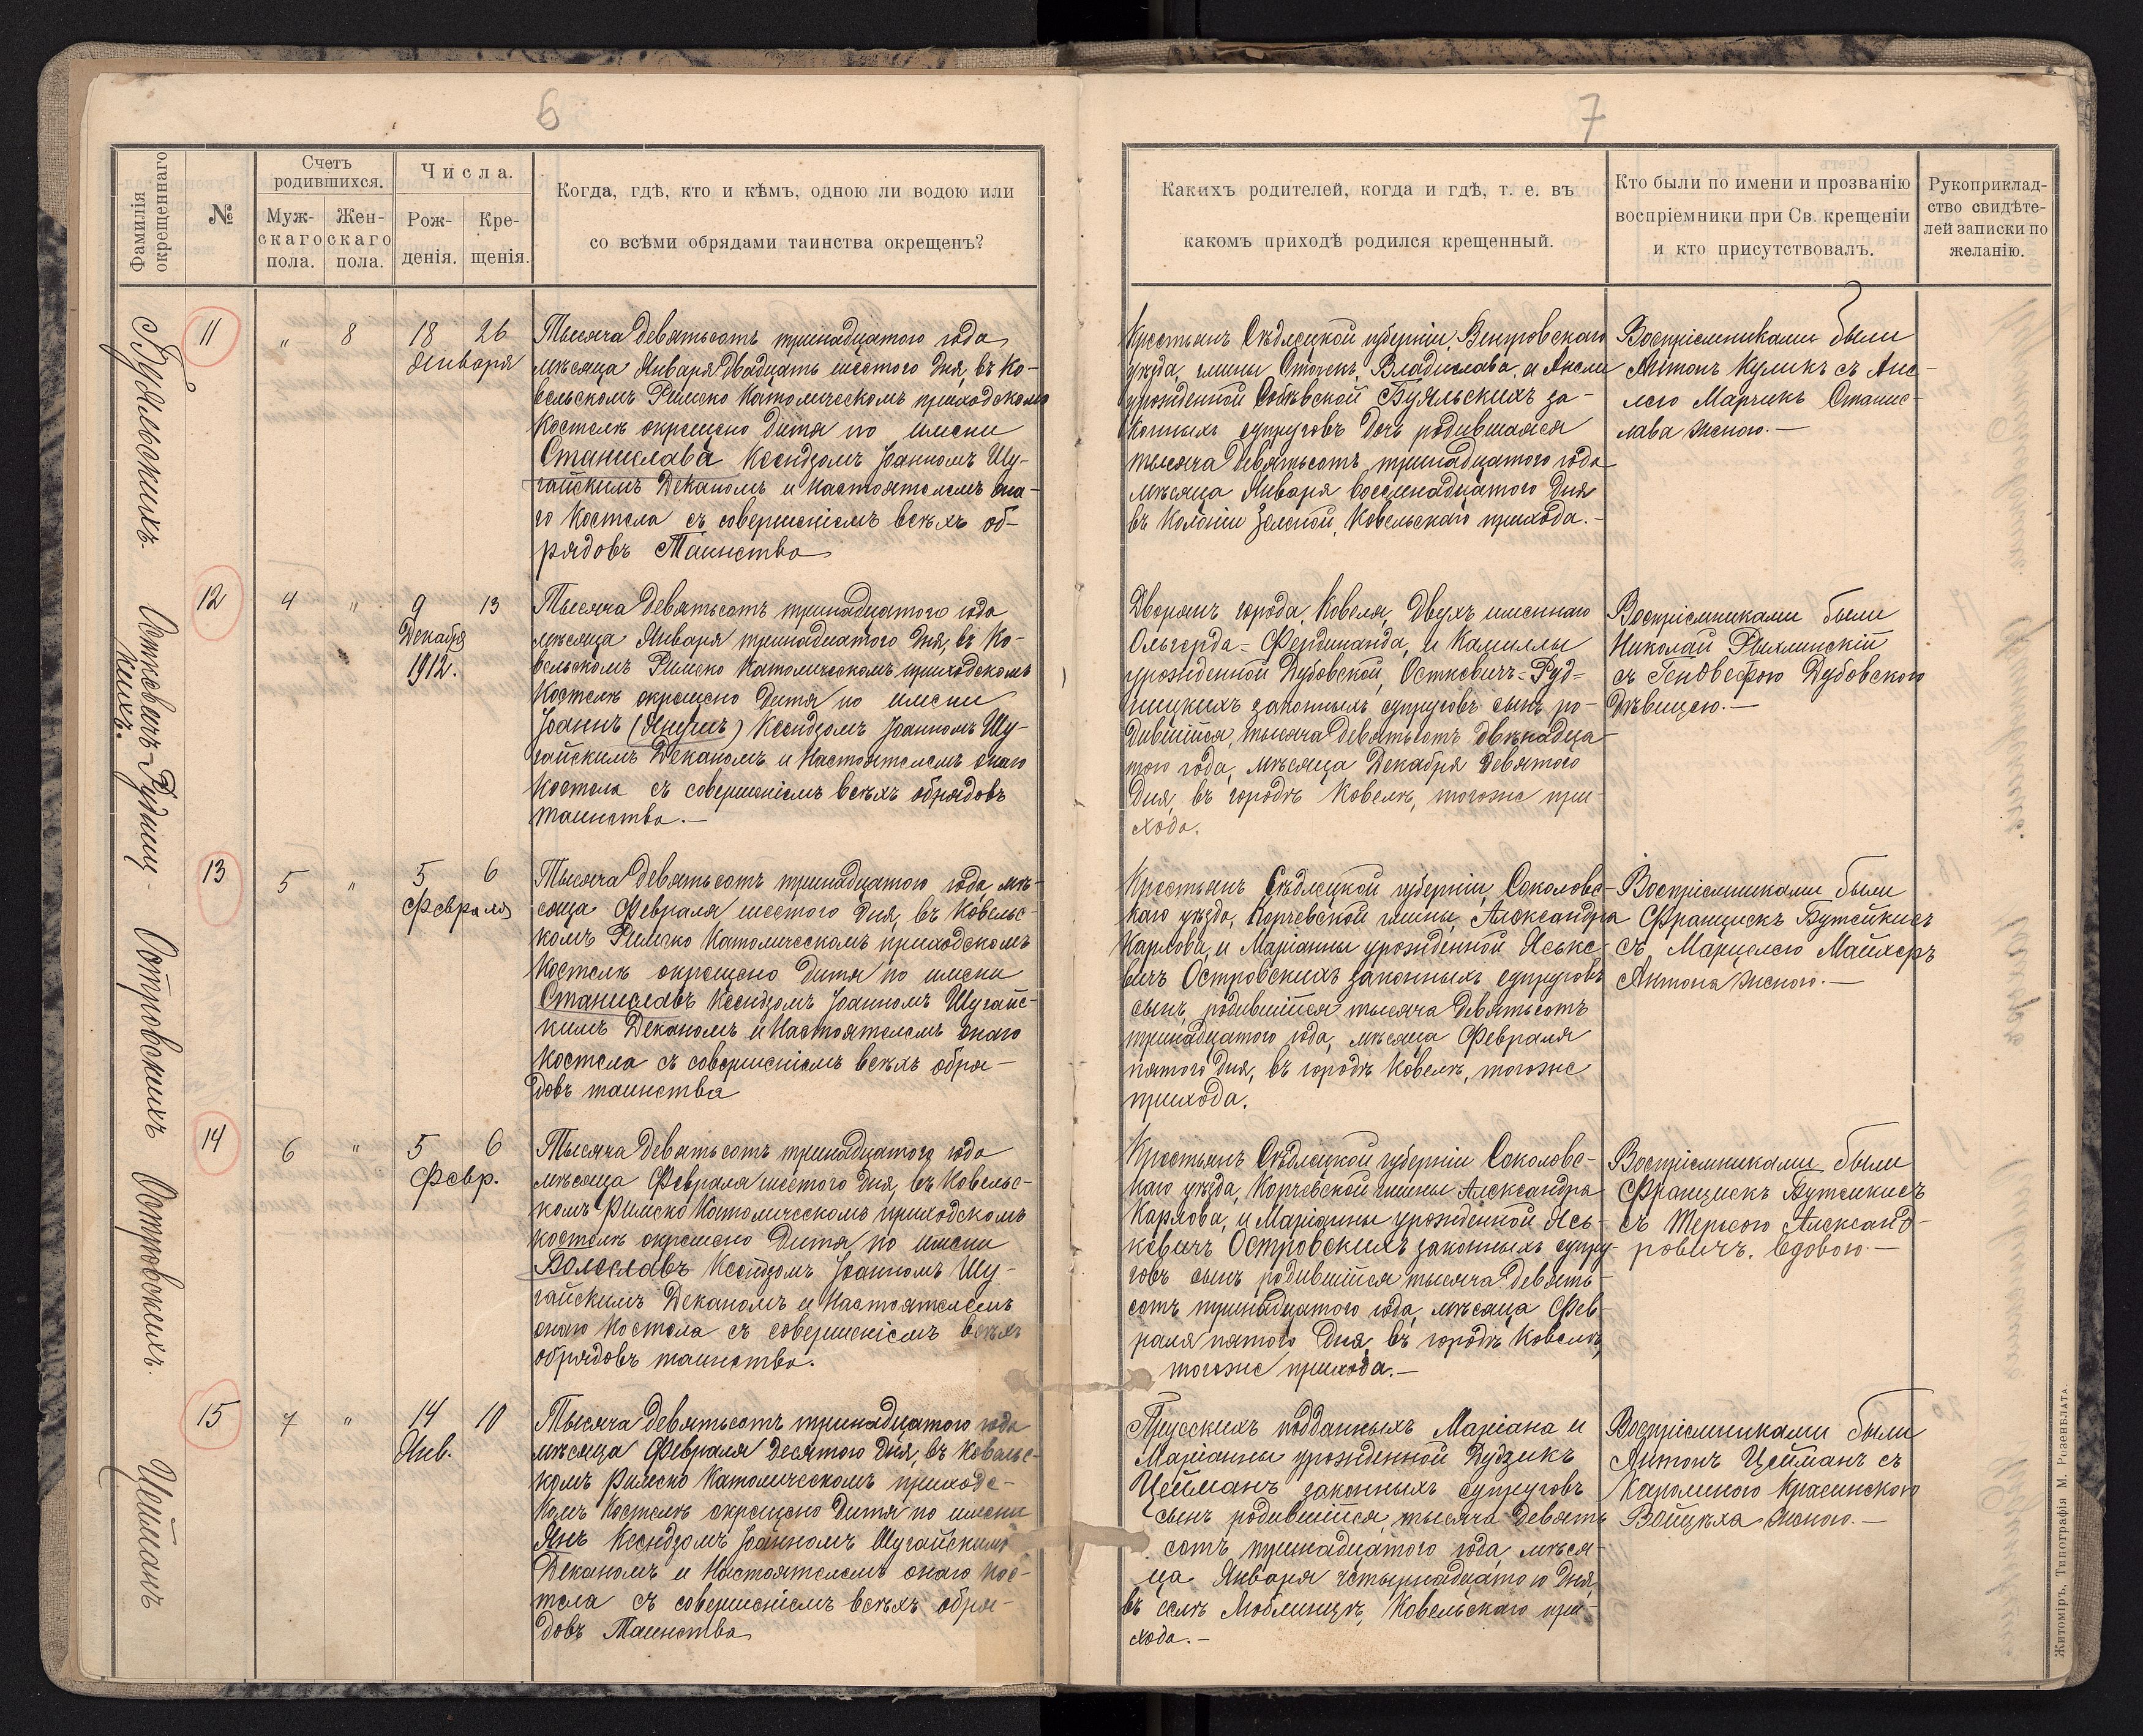 6
Фамилія окрещеннаго
№
Счетъ родившихся.
Мужскаго пола.
Женскаго пола.
Числа.
Рожденія.
Крещенія.
Когда, гдѣ, кто и кѣмъ, одною ли водою или
со всѣми обрядами таинства окрещенъ?
Буяльскихъ.
11
"
8
18 26
Января
Тысяча девятьсотъ тринадцатого года
мѣсяца Января двадцать шестого дня, въ Ко-
вельскомъ Римско Католическомъ приходскомъ
Костелѣ окрещено дитя по имени
Станислава Ксендзомъ Іоанномъ Шу-
гайскимъ Деканомъ и Настоятелемъ она-
го Костела съ совершеніемъ всѣхъ об-
рядовъ Таинства
Осткевичъ-Рудниц-
кихъ.
12
4
"
9 13
Декабря
1912.
Тысяча девятьсотъ тринадцатого года
мѣсяца Января тринадцатого дня, въ Ко-
вельскомъ Римско Католическомъ приходскомъ
Костелѣ окрещено дитя по имени
Іоаннъ (Янушъ) Ксендзомъ Іоанномъ Шу-
гайскимъ Деканомъ и Настоятелемъ онаго
Костела съ совершеніемъ всѣхъ обрядовъ
таинства.—
Островскихъ
13
5
"
5 6
Февраля
Тысяча девятьсотъ тринадцатого года мѣ-
сяца Февраля шестого дня, въ Ковельс-
комъ Римско Католическомъ приходскомъ
Костелѣ окрещено дитя по имени
Станиславъ Ксендзомъ Іоанномъ Шугайс-
кимъ Деканомъ и Настоятелемъ онаго
Костела съ совершеніемъ всѣхъ обря-
довъ таинства
Островскихъ.
14
6
"
5 6
Февр.
Тысяча девятьсотъ тринадцатого года
мѣсяца Февраля шестого дня, въ Ковельс-
комъ Римско Католическомъ приходскомъ
костелѣ окрещено дитя по имени
Болеславъ Ксендзомъ Іоанномъ Шу-
гайскимъ Деканомъ и Настоятелемъ
онаго Костела съ совершеніемъ всѣхъ
обрядовъ таинства.
Цейманъ
15
7
"
14 10
Янв.
Тысяча девятьсотъ тринадцатого года
мѣсяца Февраля десятого дня, въ Ковельс-
комъ Римско Католическомъ приходс-
комъ Костелѣ окрещено дитя по имени
Янъ Ксендзомъ Іоанномъ Шугайскимъ
Деканомъ и Настоятелемъ онаго Кос-
тела съ совершеніемъ всѣхъ обря-
довъ Таинства
7
Какихъ родителей, когда и гдѣ, т. е. въ
какомъ приходѣ родился крещенный.
Кто были по имени и прозванію
воспріемники при Св. крещеніи
и кто присутствовалъ.
Рукоприклад-
ство свидѣте-
лей записки по
желанію.
Крестьянъ Сѣдлецкой губерніи, Венгровскаго
уѣзда, гмины Сточекъ, Владислава и Анели
урожденной Собѣвской Буяльскихъ за-
конныхъ супруговъ дочь родившаяся
тысяча девятьсотъ тринадцатого года
мѣсяца Января восемнадцатого дня
въ Колоніи Зеленой, Ковельскаго прихода.—
Воспріемниками были
Антонъ Куликъ съ Ане-
лею Марчикъ Станис-
лава женою.—
Дворянъ города Ковеля, двухъ именнаго
Ольгерда-Фердинанда, и Камиллы
урожденной Дубовской, Осткевичъ-Руд-
ницкихъ законныхъ супруговъ сынъ ро-
дившійся, тысяча девятьсотъ двѣнадца-
того года, мѣсяца Декабря девятого
дня, въ городѣ Ковелѣ, тогоже при-
хода.
Воспріемниками были
Николай Рыхлинскій
съ Геновефою Дубовскою
дѣвицею.—
Крестьянъ Сѣдлецкой губерніи, Соколовс-
каго уѣзда, Корчевской гмины, Александра
Карлова, и Маріанны урожденной Яське-
вичъ Островскихъ законныхъ супруговъ
сынъ, родившійся тысяча девятьсотъ
тринадцатого года, мѣсяца Февраля
пятого дня, въ городѣ Ковелѣ, тогоже
прихода.
Воспріемниками были
Францискъ Бутейкисъ
съ Марцелею Майхеръ
Антона женою.—
Крестьянъ Сѣдлецкой губерніи Соколовс-
каго уѣзда, Корчевской гмины Александра
Карлова, и Маріанны урожденной Ясь-
кевичъ Островскихъ законныхъ супру-
говъ сынъ родившійся тысяча девять-
сотъ тринадцатого года, мѣсяца Фев-
раля пятого дня, въ городѣ Ковелѣ,
тогоже прихода.—
Воспріемниками были
Францискъ Бутейкисъ
съ Терезою Александ-
ровичъ. вдовою.—
Прусскихъ подданныхъ Маріана и
Маріанны урожденной Дудзикъ
Цейманъ законныхъ супруговъ
сынъ родившійся, тысяча девять
сотъ тринадцатого года, мѣся-
ца Января четырнадцатого дня,
въ селѣ Люблинцѣ, Ковельскаго при-
хода.—
Воспріемниками были
Антонъ Цейманъ съ
Каролиною Красинскою
Войцѣха женою.—
Житоміръ, Типографія М. Розенблата.